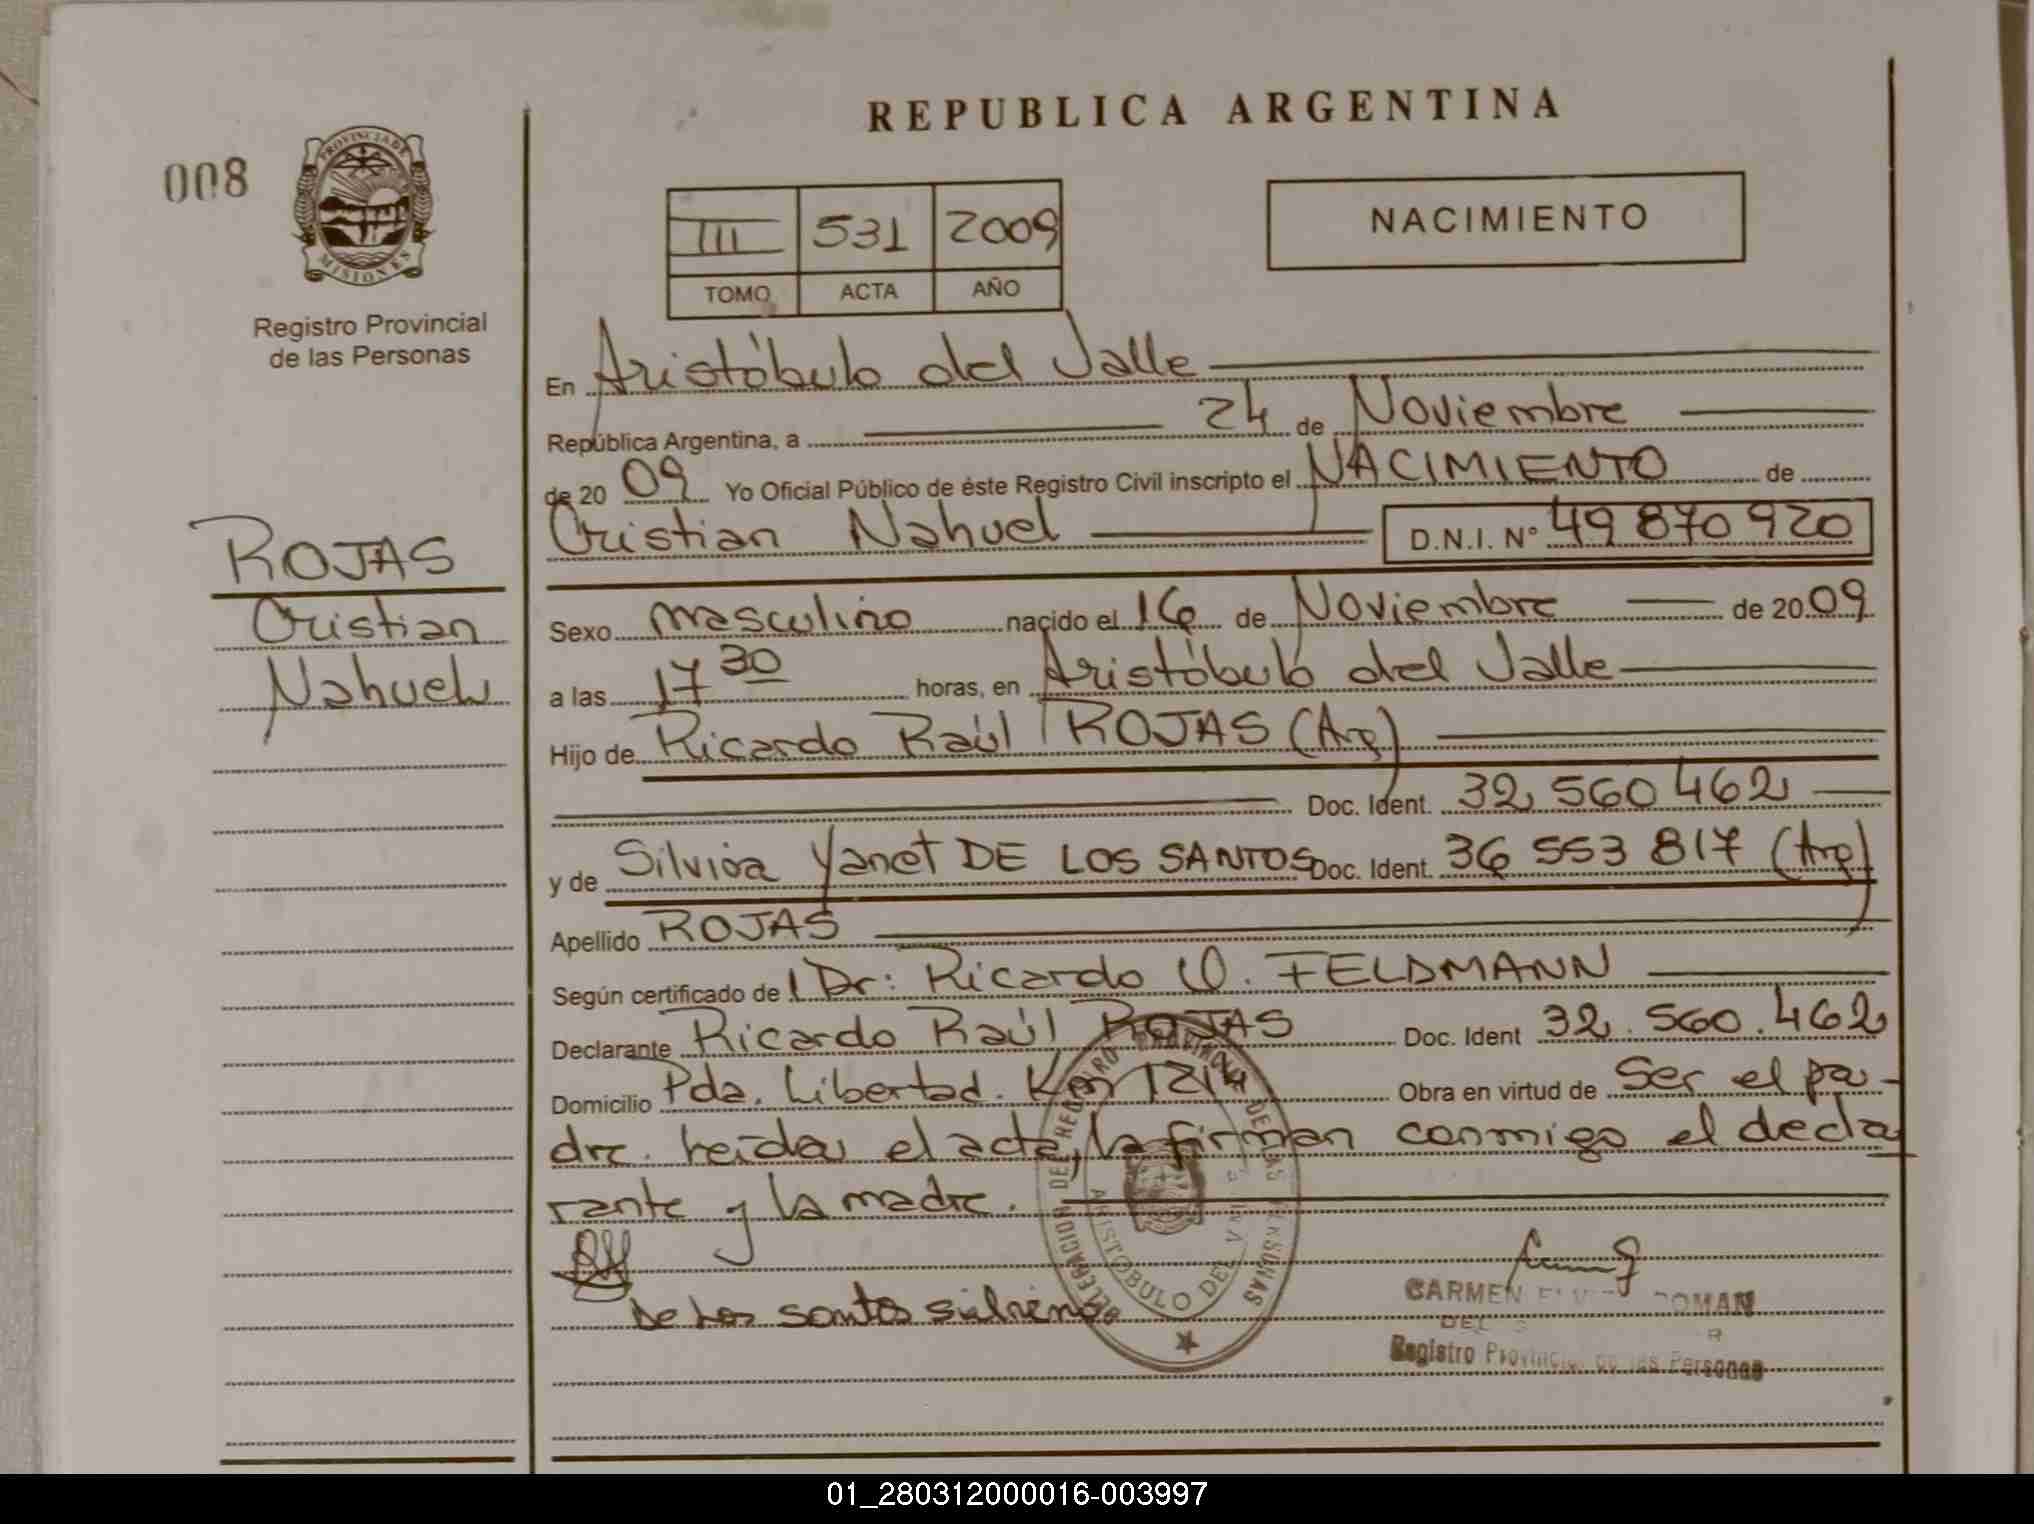 REPUBLICA ARGENTINA
008
PROVINCIA DE
MISIONES
Registro Provincial
de las Personas
III 531 2009
TOMO ACTA AÑO
NACIMIENTO
En Aristóbulo del Valle
República Argentina, a 24 de Noviembre
de 20 09 Yo Oficial Público de éste Registro Civil inscripto el NACIMIENTO de
Cristian Nahuel D.N.I. Nº 49 870 920
ROJAS
Cristian
Nahuel
Sexo masculino nacido el 16 de Noviembre de 20 09
a las 17 30 horas, en Aristóbulo del Valle
Hijo de Ricardo Raúl ROJAS (Arg)
Doc. Ident. 32 560 462
y de Silvina Yanet DE LOS SANTOS Doc. Ident. 36 553 817 (Arg)
Apellido ROJAS
Según certificado de Dr: Ricardo O. FELDMANN
Declarante Ricardo Raúl ROJAS Doc. Ident 32.560.462
Domicilio Pda. Libertad. Km 1214 Obra en virtud de Ser el pa-
dre. Leída el acta, la firman conmigo el decla
rante y la madre.
De Los santos silvina
DELEGACION DEL REGISTRO PROVINCIAL DE LAS PERSONAS
ARISTOBULO DEL VALLE
CARMEN ROMAN
Registro Provincial de las Personas
01_280312000016-003997